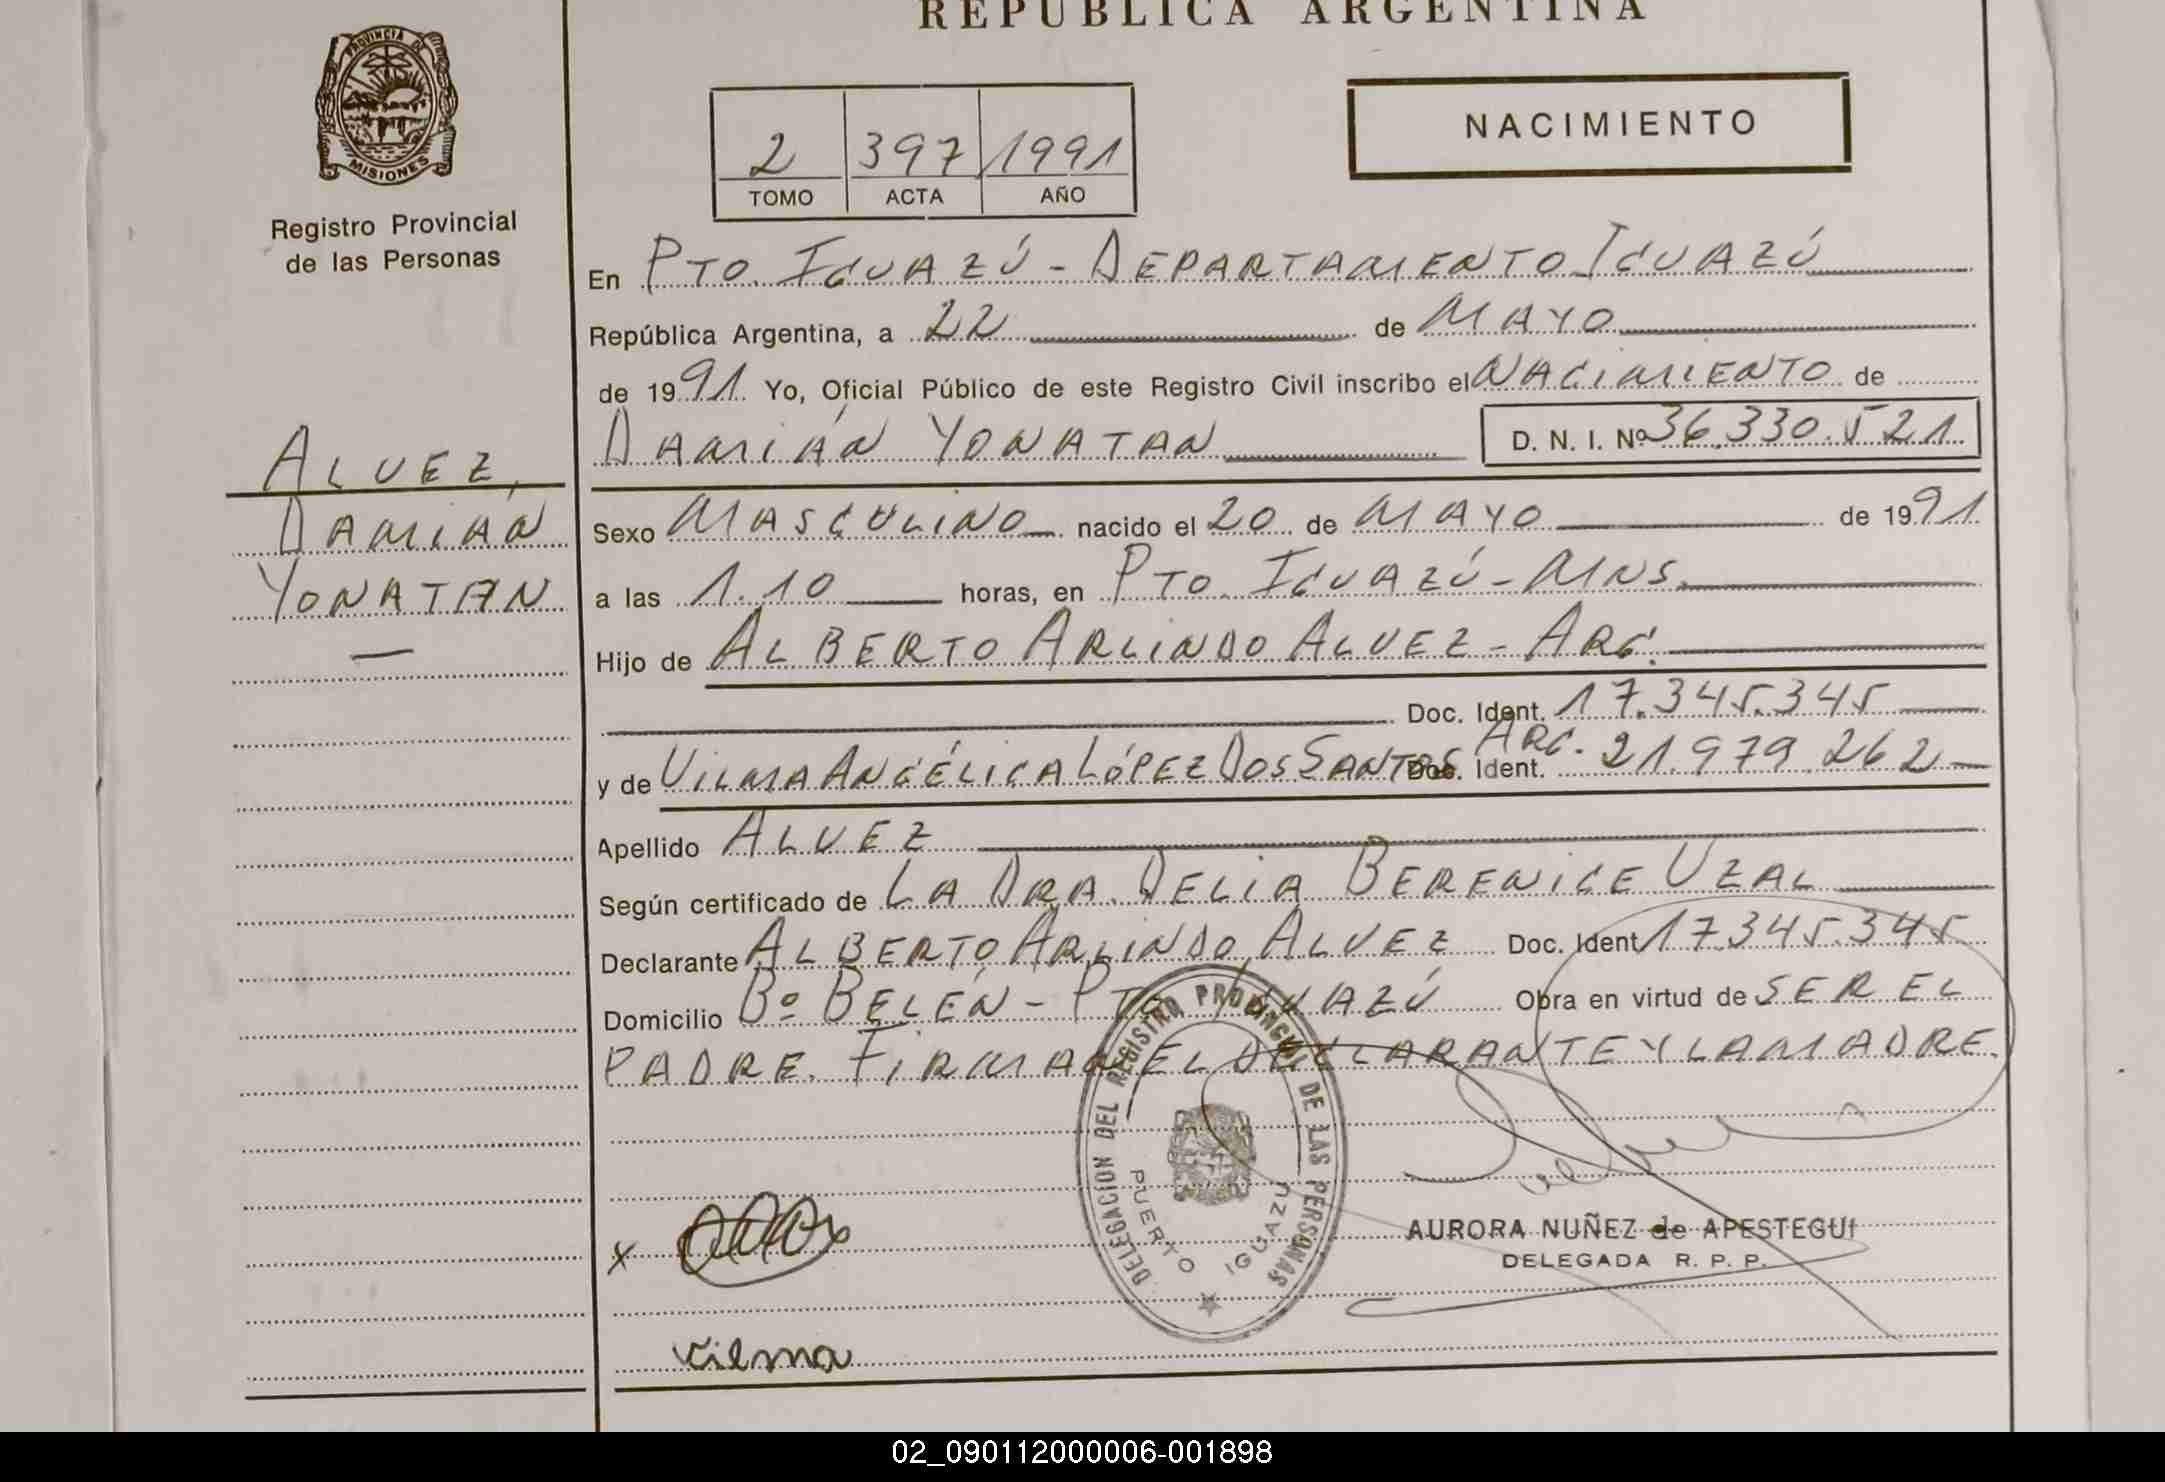 REPUBLICA ARGENTINA
PROVINCIA DE
MISIONES
Registro Provincial
de las Personas
2 397 1991
TOMO ACTA AÑO
NACIMIENTO
En PTO. IGUAZÚ - DEPARTAMENTO IGUAZÚ
República Argentina, a 22 de MAYO
de 1991. Yo, Oficial Público de este Registro Civil inscribo el NACIMIENTO de
DAMIÁN YONATAN D. N. I. Nº 36.330.521
ALVEZ,
DAMIÁN
YONATAN
Sexo MASCULINO nacido el 20 de MAYO de 1991
a las 1.10 horas, en PTO. IGUAZÚ - MNS.
Hijo de ALBERTO ARLINDO ALVEZ - ARG.
Doc. Ident. 17.345.345
y de VILMA ANGÉLICA LÓPEZ DOS SANTOS ARG. Doc. Ident. 21.979.262
Apellido ALVEZ
Según certificado de LA DRA. DELIA BERENICE UZAL
Declarante ALBERTO ARLINDO ALVEZ Doc. Ident 17.345.345
Domicilio Bº BELÉN - PTO. IGUAZÚ Obra en virtud de SER EL
PADRE. FIRMAN EL DECLARANTE Y LA MADRE.
DELEGACION DEL REGISTRO PROVINCIAL DE LAS PERSONAS
PUERTO IGUAZU
AURORA NUÑEZ de APESTEGUI
DELEGADA R. P. P.
x
Vilma
02_090112000006-001898